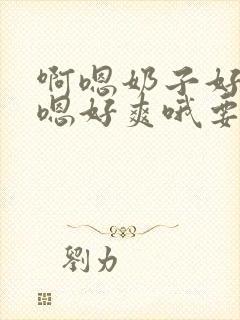 啊嗯奶子好
嗯好爽哦要
劉力